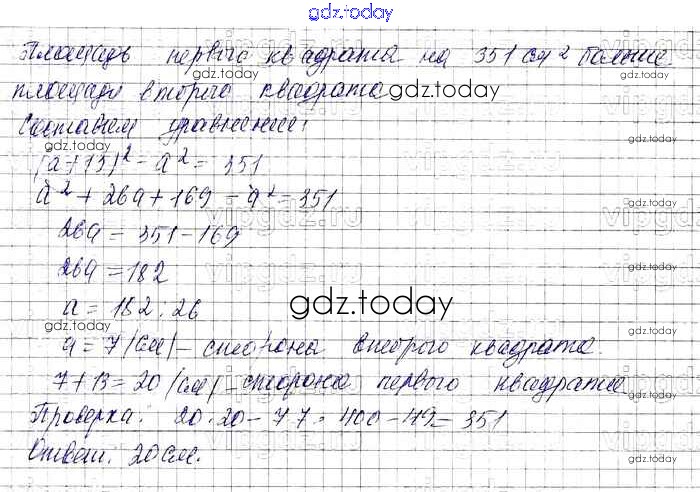 gdz.today
Площадь первого квадрата на 351 см 2 больше
gdz.today
gdz.today
площади второго квадрата gdz.today
vipgdz.ru
Составим уравнение:
gdz.today
(a+13)² - a² = 351
gdz.today
a² + 26a + 169 - a² = 351
vipgdz.ru
26a = 351 - 169
gdz.today
26a = 182
a = 182 : 26
gdz.today
gdz.today
gdz.today
a = 7 (см) - сторона второго квадрата.
7 + 13 = 20 (см) - сторона первого квадрата
gdz.today
Проверка: 20·20 - 7·7 = 400 - 49 = 351
vipgdz.ru
Ответ: 20 см.
gdz.today
gdz.today